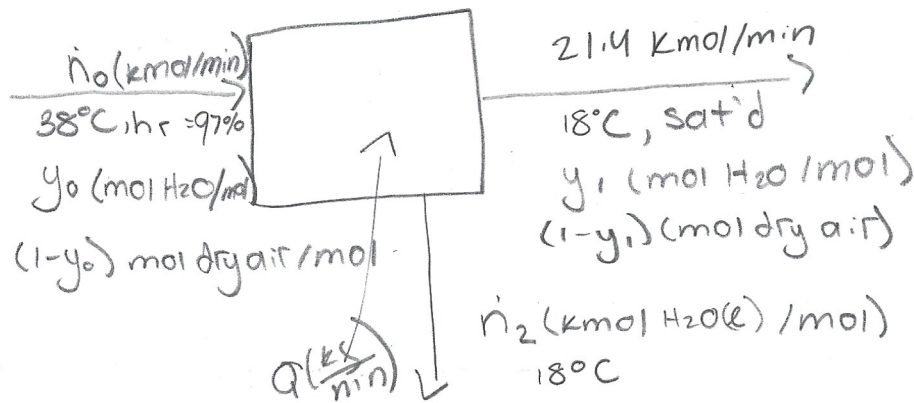 ṅ₀ (kmol/min)
38°C, hr =97%
y₀ (mol H₂O/mol)
(1-y₀) mol dry air/mol
21.4 Kmol/min
18°C, sat'd
y₁ (mol H₂O/mol)
(1-y₁) (mol dry air)
ṅ₂ (kmol H₂O(l) /mol)
18°C
Q (kJ/min)